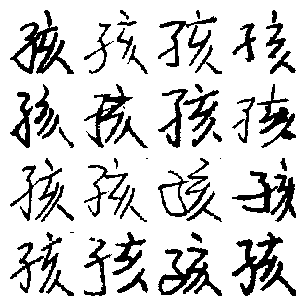 孩孩孩孩
孩孩孩孩
孩孩孩孩
孩孩孩孩